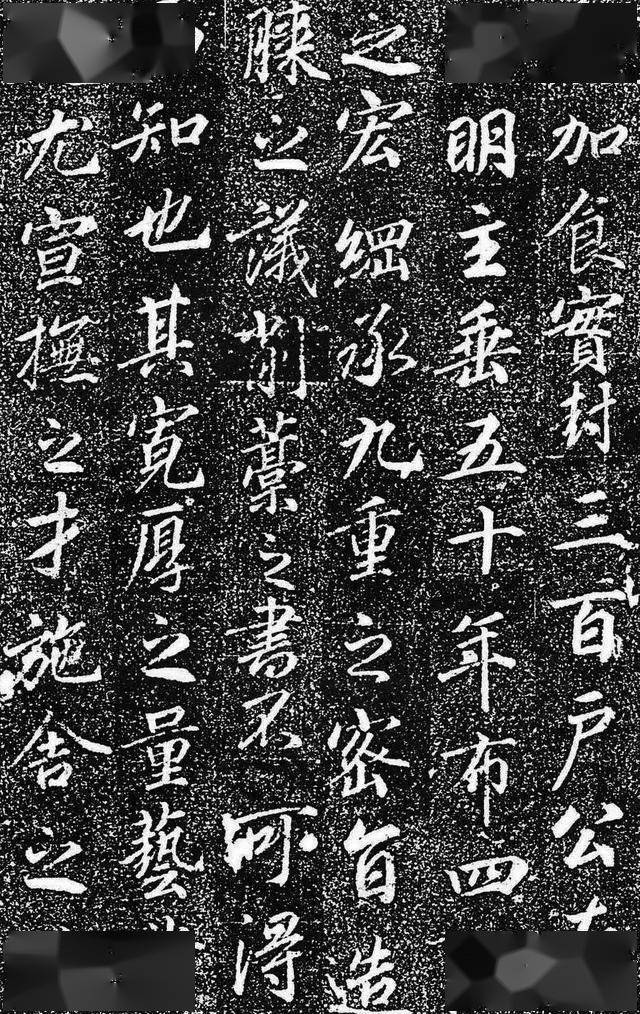 加食實封三百户公
明主垂五十年布四
之宏綱承九重之密旨造
膝之議削藁之書不可得
知也其寬厚之量藝
尤宣撫之才施舍之